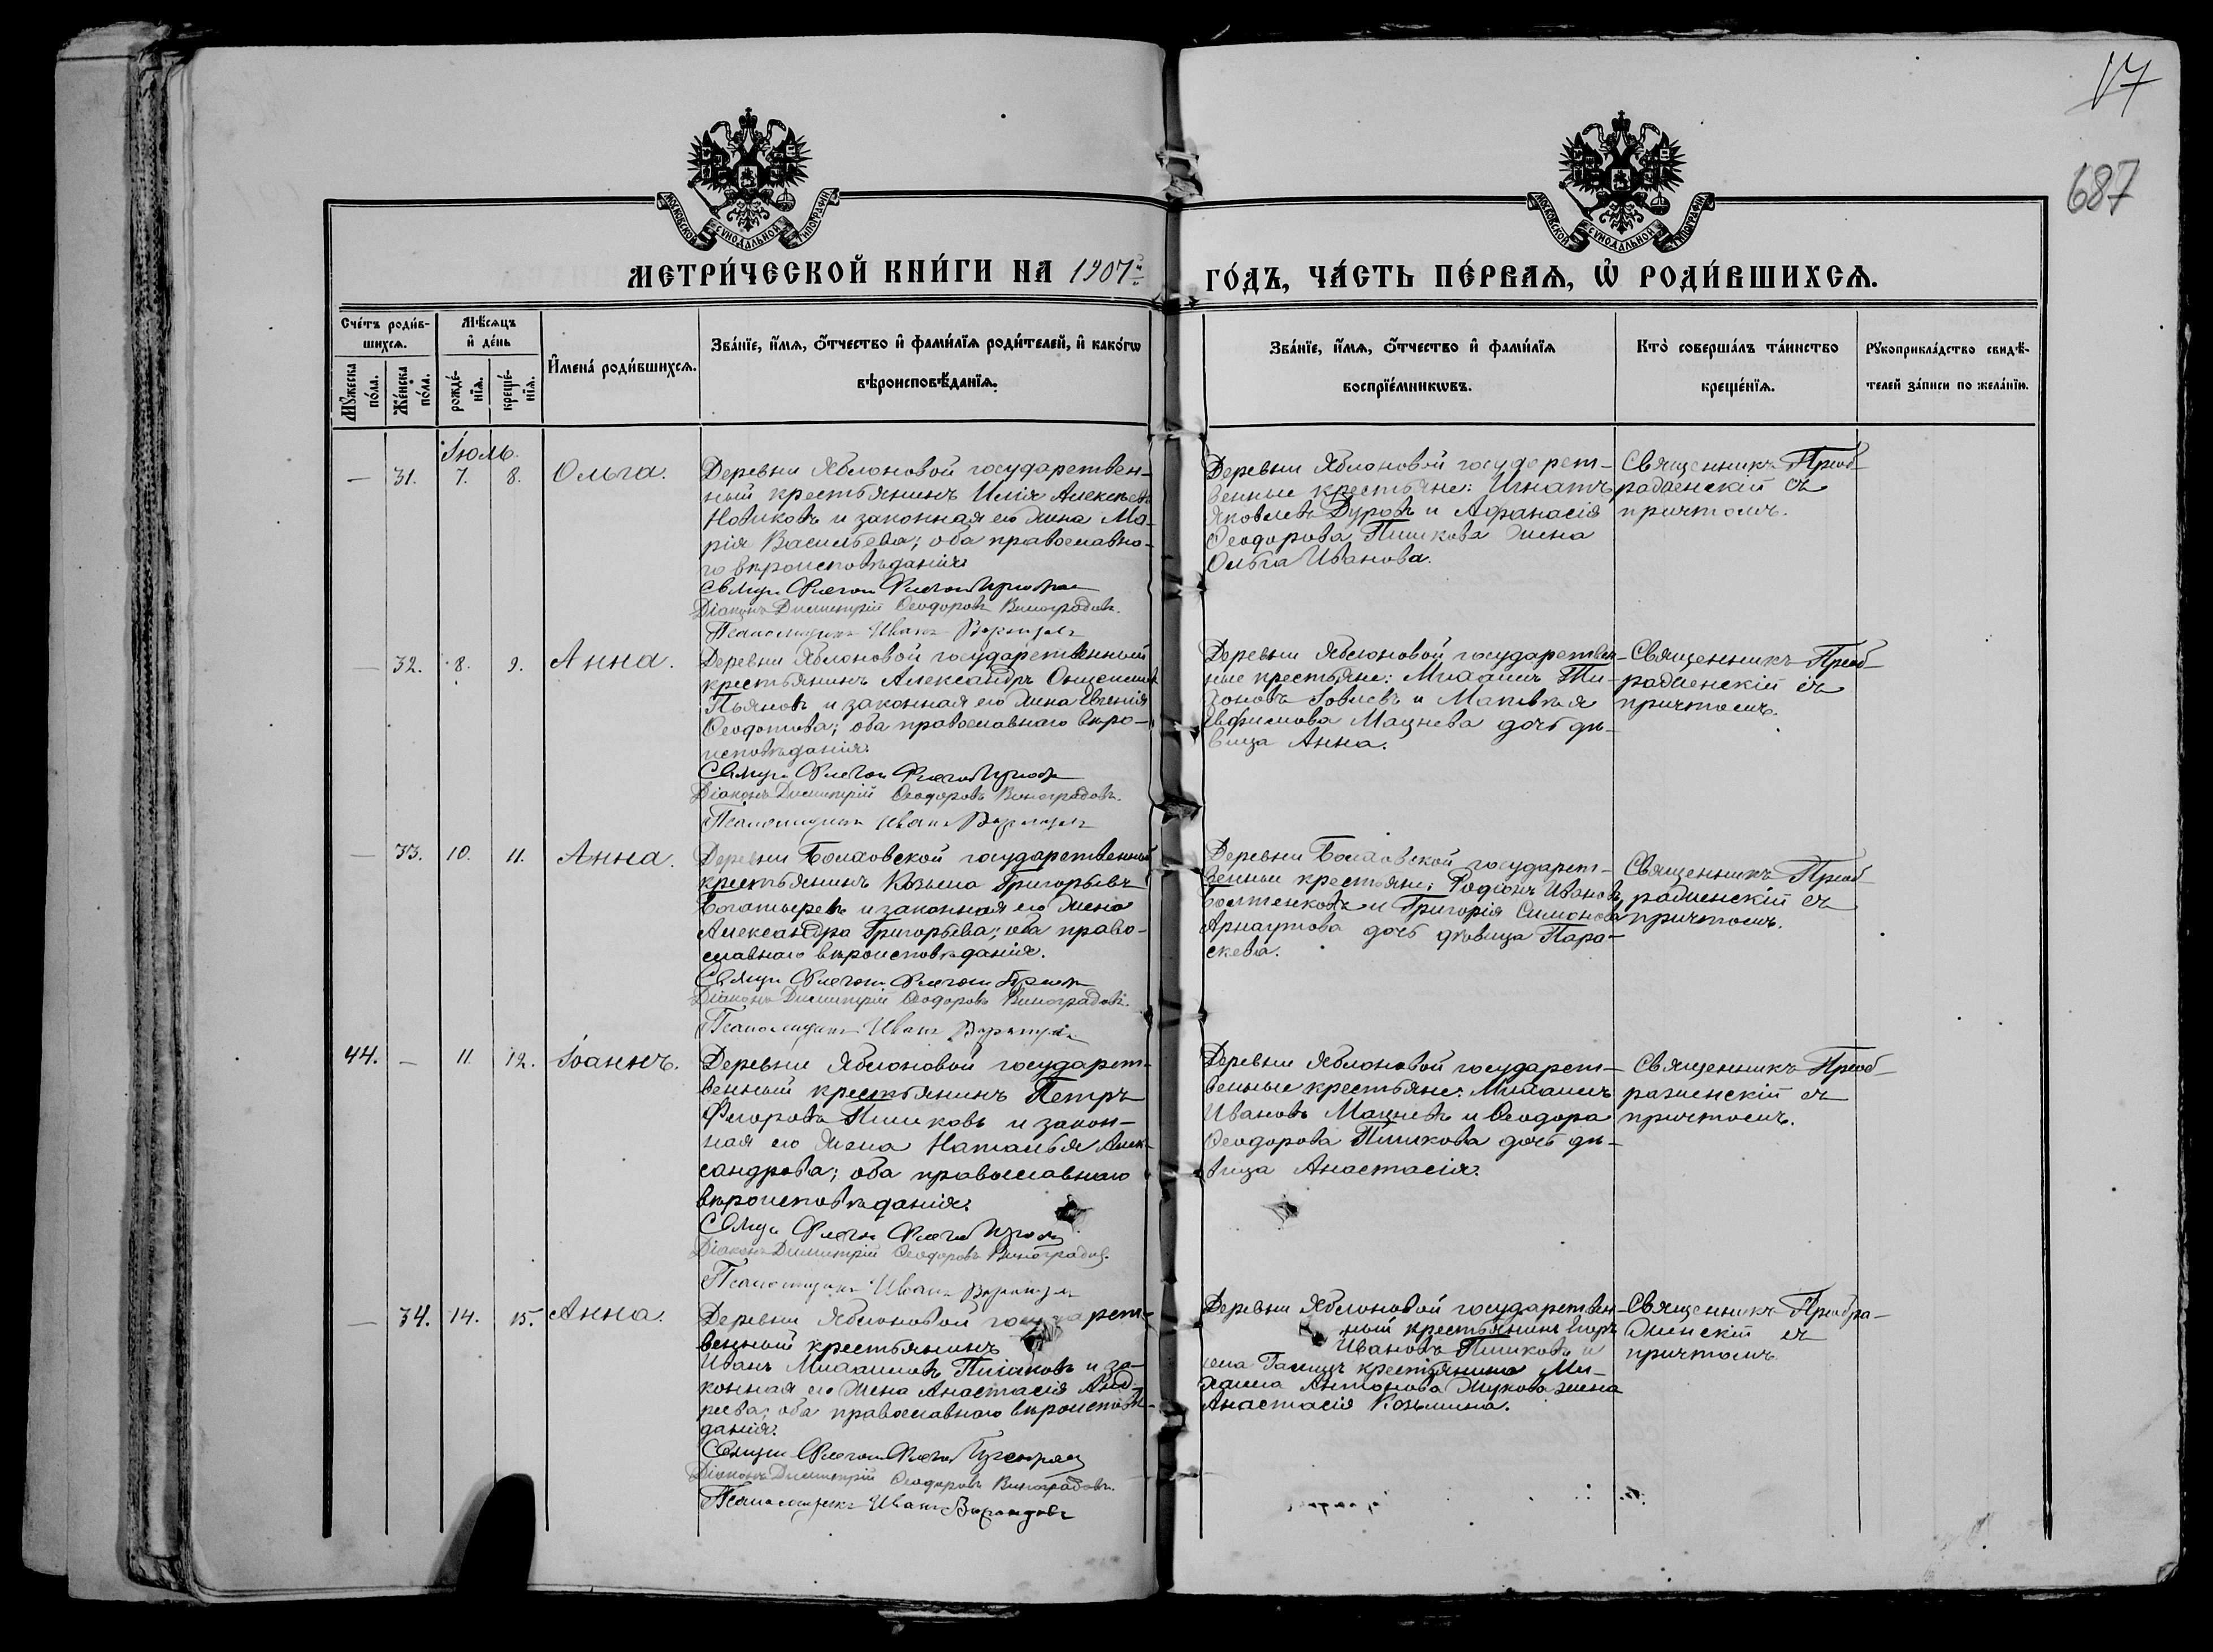 17
687
МОСКОВСКОЙ СѴНОДАЛЬНОЙ ТИПОГРАФІИ
МОСКОВСКОЙ СѴНОДАЛЬНОЙ ТИПОГРАФІИ
МЕТРИ́ЧЕСКОЙ КНИ́ГИ НА 1907й
ГО́ДЪ, ЧА́СТЬ ПЕ́РВАѦ, Ѡ҆ РОДИ́ВШИХСѦ.
Сче́тъ роди́в-
шихсѧ.
Мѣ́сѧцъ
и҆ де́нь
И҆мена́ роди́вшихсѧ.
Зва́нїе, и҆́мѧ, ѻ҆́тчество и҆ фами́лїѧ роди́телей, и҆ како́гѡ
вѣроисповѣ́данїѧ.
Мꙋ́жеска по́ла.
Же́нска по́ла.
рожде́-нїѧ.
креще́-нїѧ.
Зва́нїе, и҆́мѧ, ѻ҆́тчество и҆ фами́лїѧ
воспрїе́мникѡвъ.
Кто̀ соверша́лъ та́инство
креще́нїѧ.
Рꙋкоприкла́дство свидѣ́-
телей за́писи по жела́нїю.
Іюль.
— 31. 7. 8. Ольга.
Деревни Яблоновой государствен-
ный крестьянинъ Илія Алексѣевъ
Новиковъ и законная его жена Ма-
рія Васильева; оба православна-
го вѣроисповѣданія
Діаконъ Димитрій Ѳеодоровъ Виноградовъ.
Псаломщикъ Иванъ
Деревни Яблоновой государст-
венные крестьяне: Игнатъ
Яковлевъ Дуровъ и Афанасія
Ѳеодорова Пишкова жена
Ольга Иванова.
Священникъ Преоб-
раженскій съ
причтомъ.
— 32. 8. 9. Анна.
Деревни Яблоновой государственный
крестьянинъ Александръ
Пьяновъ и законная его жена Евгенія
Ѳеодотова; оба православнаго вѣро-
исповѣданія.
Діаконъ Димитрій Ѳеодоровъ Виноградовъ.
Псаломщикъ Иванъ
Деревни Яблоновой государствен-
ные крестьяне: Михаилъ Ти-
хоновъ Іовлевъ и Матвѣя
Евфимова Мацнева дочь дѣ-
вица Анна.
Священникъ Преоб-
раженскій съ
причтомъ.
— 33. 10. 11. Анна.
Деревни Болховской государственный
крестьянинъ Козьма Григорьевъ
Богатыревъ и законная его жена
Александра Григорьева; оба право-
славнаго вѣроисповѣданія.
Діаконъ Димитрій Ѳеодоровъ Виноградовъ.
Псаломщикъ Иванъ
Деревни Болховской государст-
венные крестьяне: Родіонъ Ивановъ
Болтенковъ и Григорія Симонова
Арнаутова дочь дѣвица Пара-
скева.
Священникъ Преоб-
раженскій съ
причтомъ.
44. — 11. 12. Іоаннъ.
Деревни Яблоновой государст-
венный крестьянинъ Петръ
Флоровъ Пишковъ и закон-
ная его жена Наталья Алек-
сандрова; оба православнаго
вѣроисповѣданія.
Діаконъ Димитрій Ѳеодоровъ Виноградовъ.
Псаломщикъ Иванъ
Деревни Яблоновой государст-
венные крестьяне: Михаилъ
Ивановъ Мацневъ и Ѳеодора
Ѳеодорова Пишкова дочь дѣ-
вица Анастасія.
Священникъ Преоб-
раженскій съ
причтомъ.
— 34. 14. 15. Анна.
Деревни Яблоновой государст-
венный крестьянинъ
Иванъ Михаиловъ Пишковъ и за-
конная его жена Анастасія Анд-
реева; оба православнаго вѣроисповѣ-
данія.
Діаконъ Димитрій Ѳеодоровъ Виноградовъ.
Псаломщикъ Иванъ
Деревни Яблоновой государствен-
ный крестьянинъ Егоръ
Ивановъ Пишковъ и
села крестьянина Ми-
хаила Антонова Жукова жена
Анастасія Козьмина.
Священникъ Преобра-
женскій съ
причтомъ.